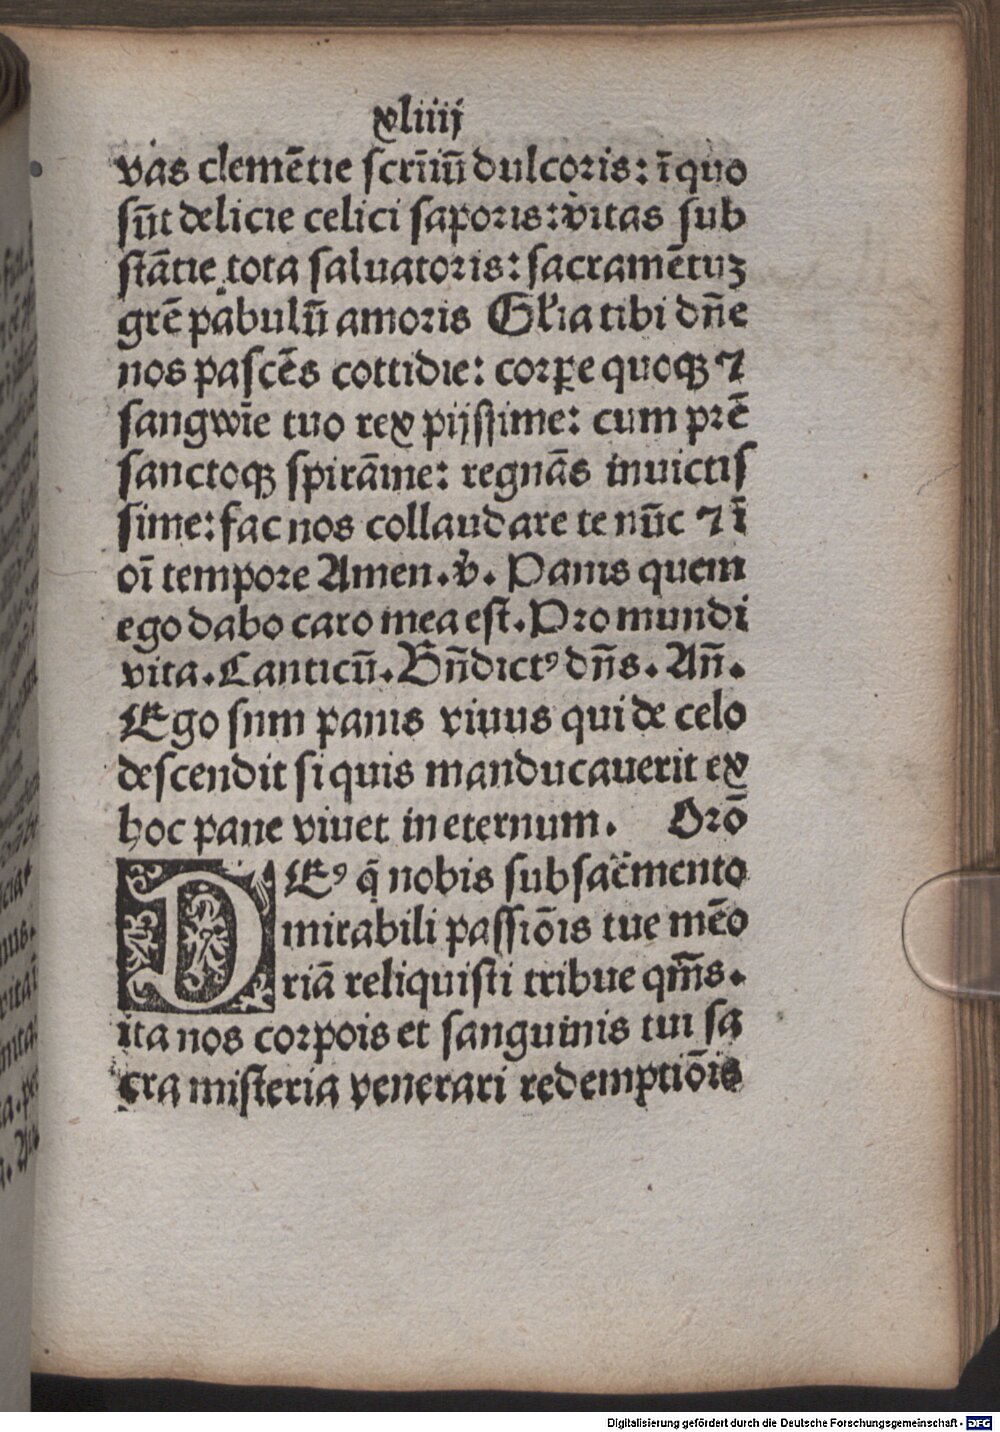 xliiij
vas clemētie scrīiū dulcoris: ī quo
sūt delicie celici saporis: v̓itas sub
stātie tota saluatoris: sacramētuꝫ
grē pabulū amoris Gl̓ia tibi dn̄e
nos pascēs cottidie: corꝑe quoqꝫ ⁊
sangwīe tuo rex pijssime: cum prē
sanctoqꝫ spirāine: regnās inuictis
sime: fac nos collaudare te nūc ⁊ ī
oī tempore Amen. v̓. Panis quem
ego dabo caro mea est. Pro mundi
vita. Canticū. Bn̄dictꝰ dn̄s. An̄.
Ego sum panis viuus qui de celo
descendit si quis manducauerit ex
hoc pane viuet in eternum. Orō
DEꝰ q̄ nobis sub sac̄mento
mirabili passiōis tue mēo
riā reliquisti tribue qm̄s.
ita nos corpois et sanguinis tui sa
cra misteria venerari redemptiōis
Digitalisierung gefördert durch die Deutsche Forschungsgemeinschaft - DFG